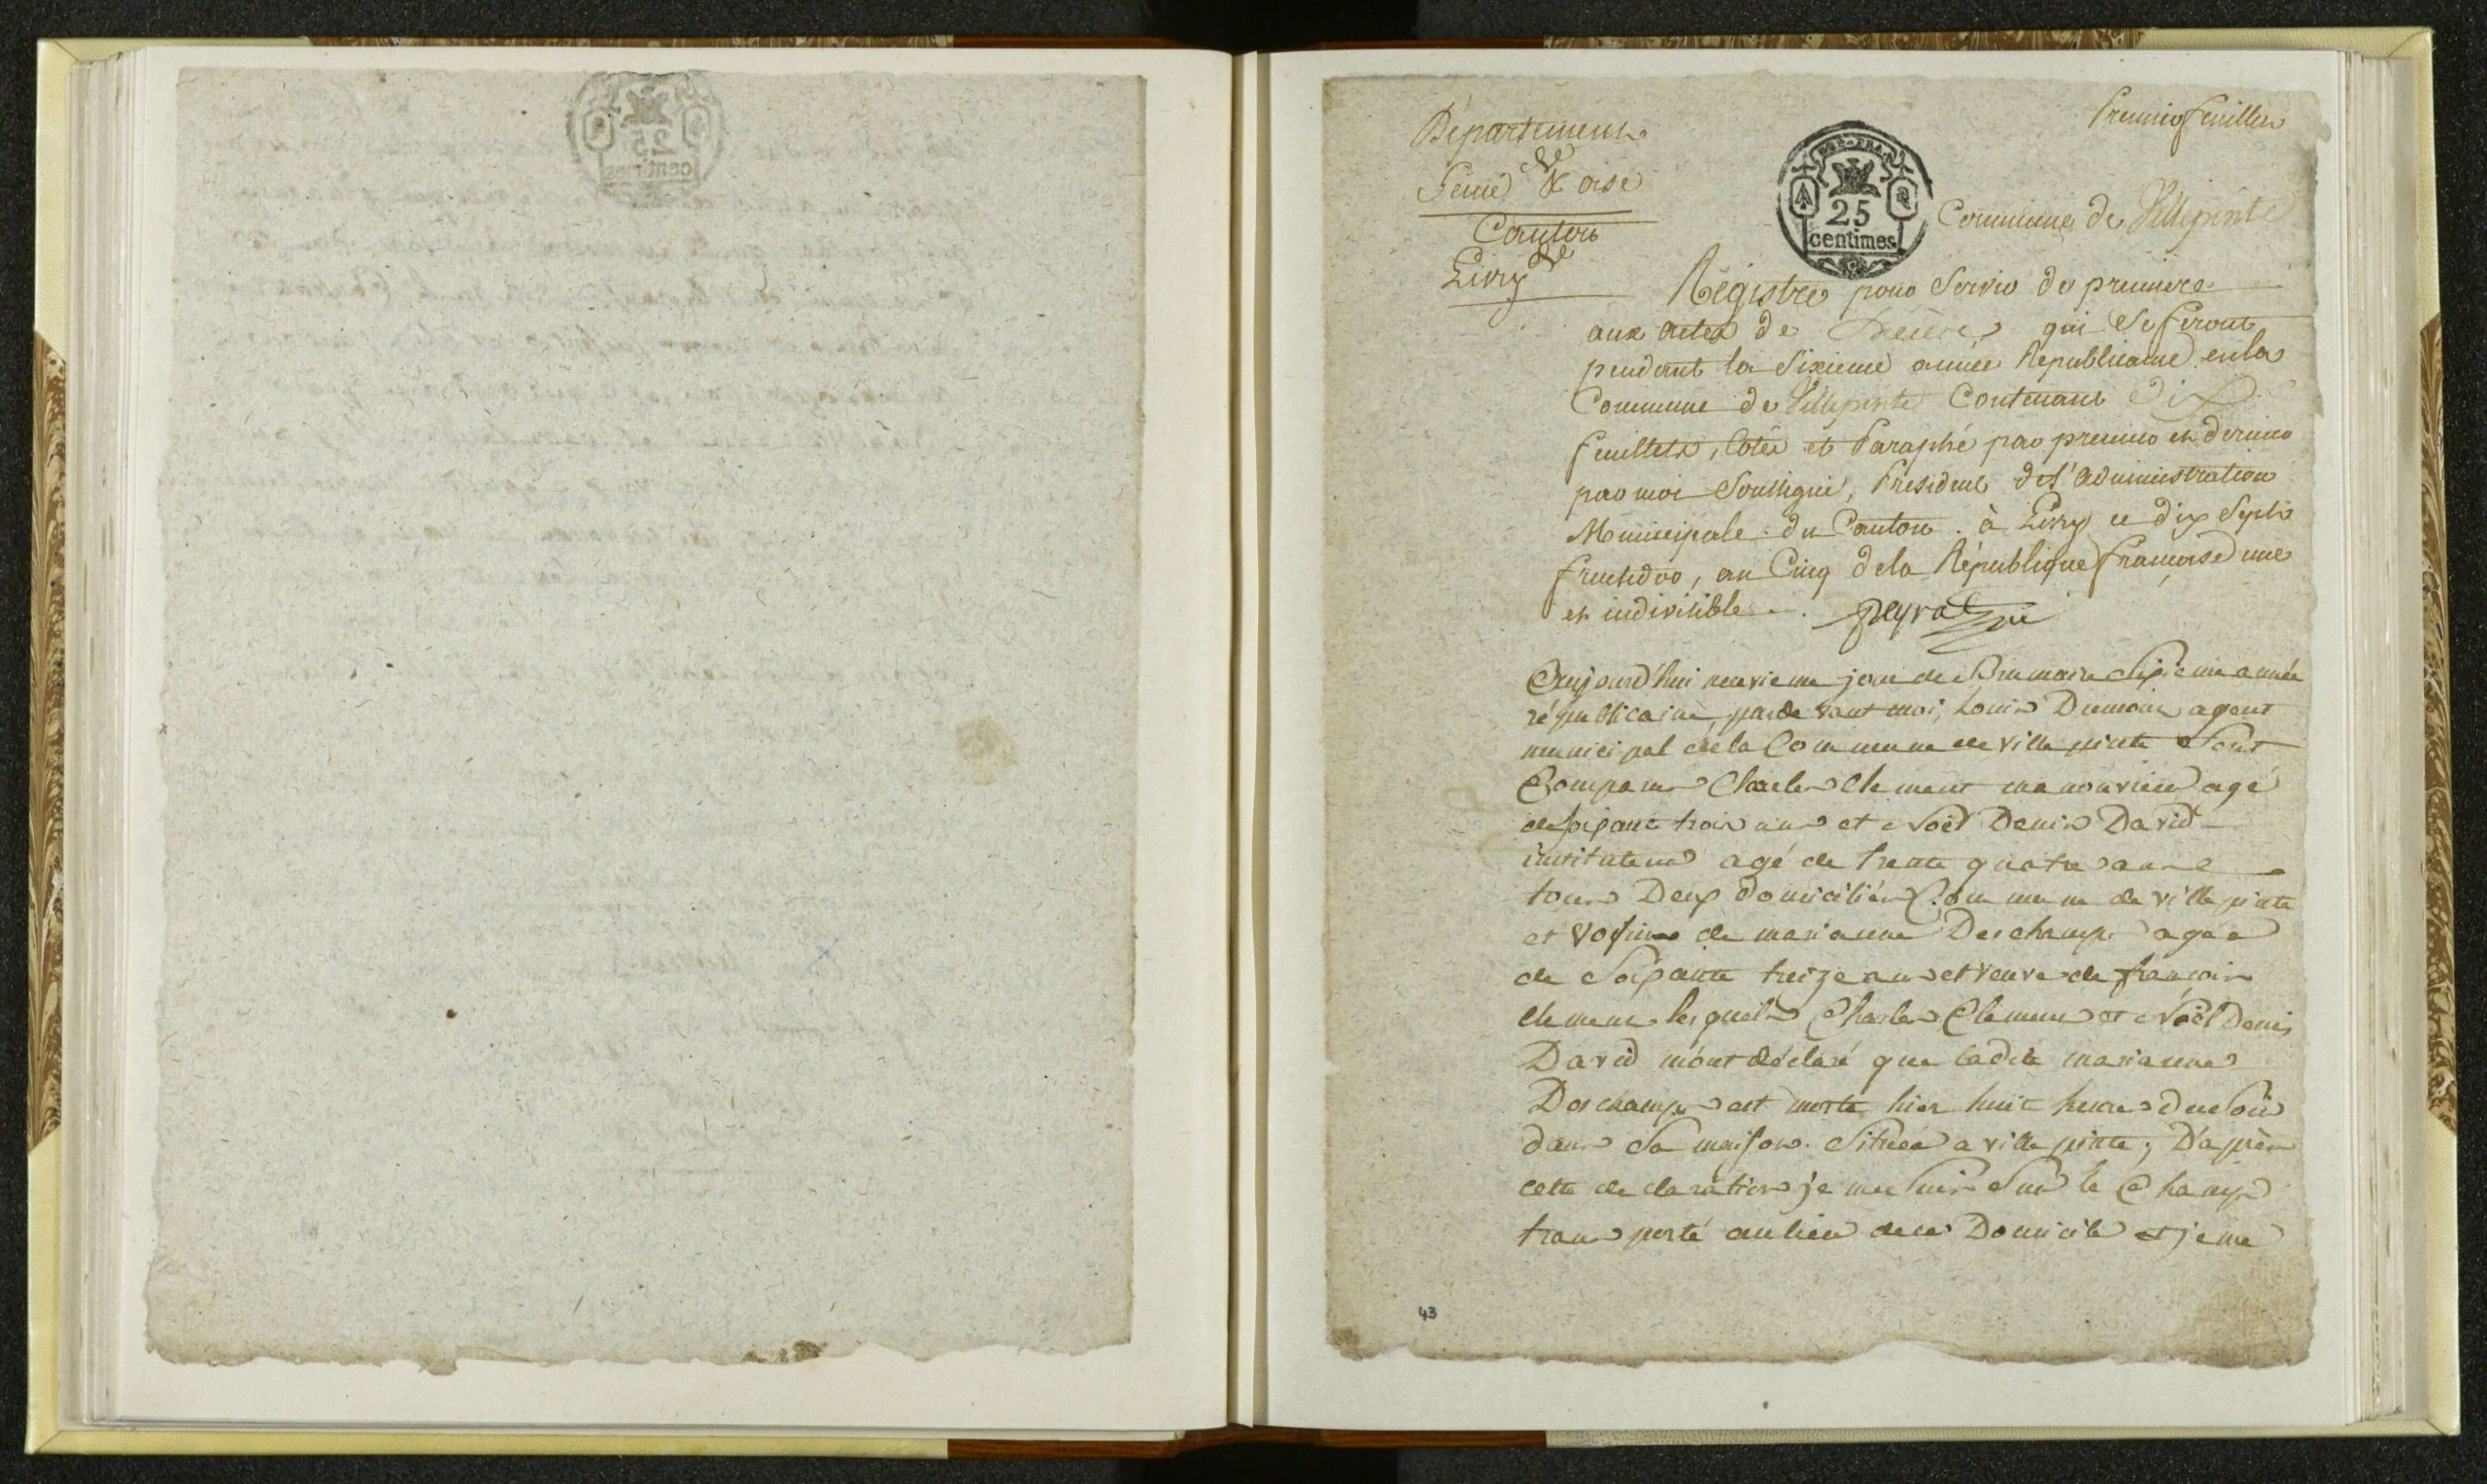 Premier feuillet
Département
de
Seine & oise
Canton
de
Livry
REP. FRA
25
centimes
Commune de Villepinte
Régistre pour Servir de premiere
aux actes de Décès qui Se feront
pendant la Sixieme année Republicaine en la
Commune de Villepinte Contenant dix
feuillets, Cotés et Paraphé par premier et dernier
par moi Soussigné, President de l'administration
Municipale du Canton. à Livry ce dix Sept
fructidor, an Cinq de la République francaise une
et indivisible.
Aujourd'hui neuvieme jour de Brumaire Sixieme année
républicaine, pardevant moi, Louis Dumont agent
municipal de la Commune de ville pinte Sont
Comparus Charles Clement manouvrier agé
de soixante trois ans et Noël Denis David
instituteur agé de trente quatre ans
tous Deux domiciliés Commune de ville pinte
et voisins de marianne Deschamps agée
de Soixante treize ans et veuve de françois
Clement lesquels Charles Clement et Noël Denis
David m'ont déclaré que ladite marianne
Deschamps est morte hier huit heures du Soir
dans Sa maison Située a ville pinte; D'après
cette declaration je me suis Sur le Champ
trans porté au lieu de ce Domicile et je me
43